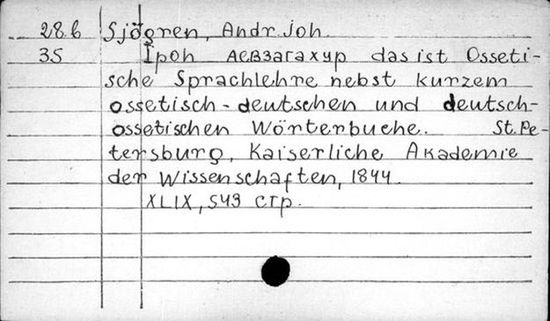 28.6 Sjögren, Andr. Joh.
35 Ірон æвзагахур das ist Osseti-
sche Sprachlehre nebst kurzem
ossetisch-deutschen und deutsch-
ossetischen Wörterbuche. St. Pe-
tersburg, Kaiserliche Akademie
der Wissenschaften, 1844.
XLIX, 543 стр.